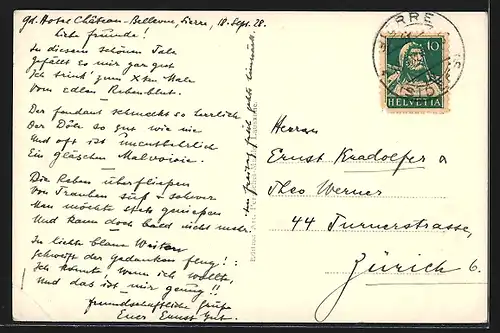 Gd. Hotel Château-Bellevue, Sierre, 18. Sept. 28.
Liebe Freunde!
In diesem schönen Tale
Gefällt es mir gar gut
Ich trink' zum X ten Male
Vom edlen Rebenblut.
Der Fendant schmeckt so herrlich
Der Dôle so gut wie nie
Und oft ist unentbehrlich
Ein Gläschen Malvoisie.
Die Reben überfliessen
Von Trauben süss + schwer
Man möchte stets geniessen
Und kann doch bald nicht mehr.
In lichte blaue Weiten
Schweift der Gedanken Flug!
Ich könnte wenn ich wollte,
Und das ist mir genug!!
Freundschaftliche Grüsse
Euer Ernst Gut.
Am Freitag geht's
SIERRE
10
HELVETIA
Herren
Ernst Kradolfer &
Theo Werner
44 Turnerstrasse,
Zürich 6.